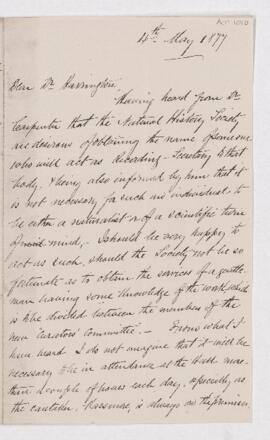 4th May 1877
Dear Dr. Harrington,
Having heard from Dr
Carpenter that the Natural History Society
are desirous of obtaining the name of someone
who will act as Recording-Secretary to that
body, & being also informed by him that it
is not necessary for such an individual to
be either a naturalist or of a scientific turn
of mind, - I should be very happy to
act as such, should the Society not be so
fortunate as to obtain the services of a gentle-
man having some knowledge of the work, which
is to be divided between the members of the
new Curators' Committee. - From what I
have heard I do not imagine that it will be
necessary to be in attendance at the Hall more
than a couple of hours each day, especially as
the caretaker, Passmore, is always on the premises,